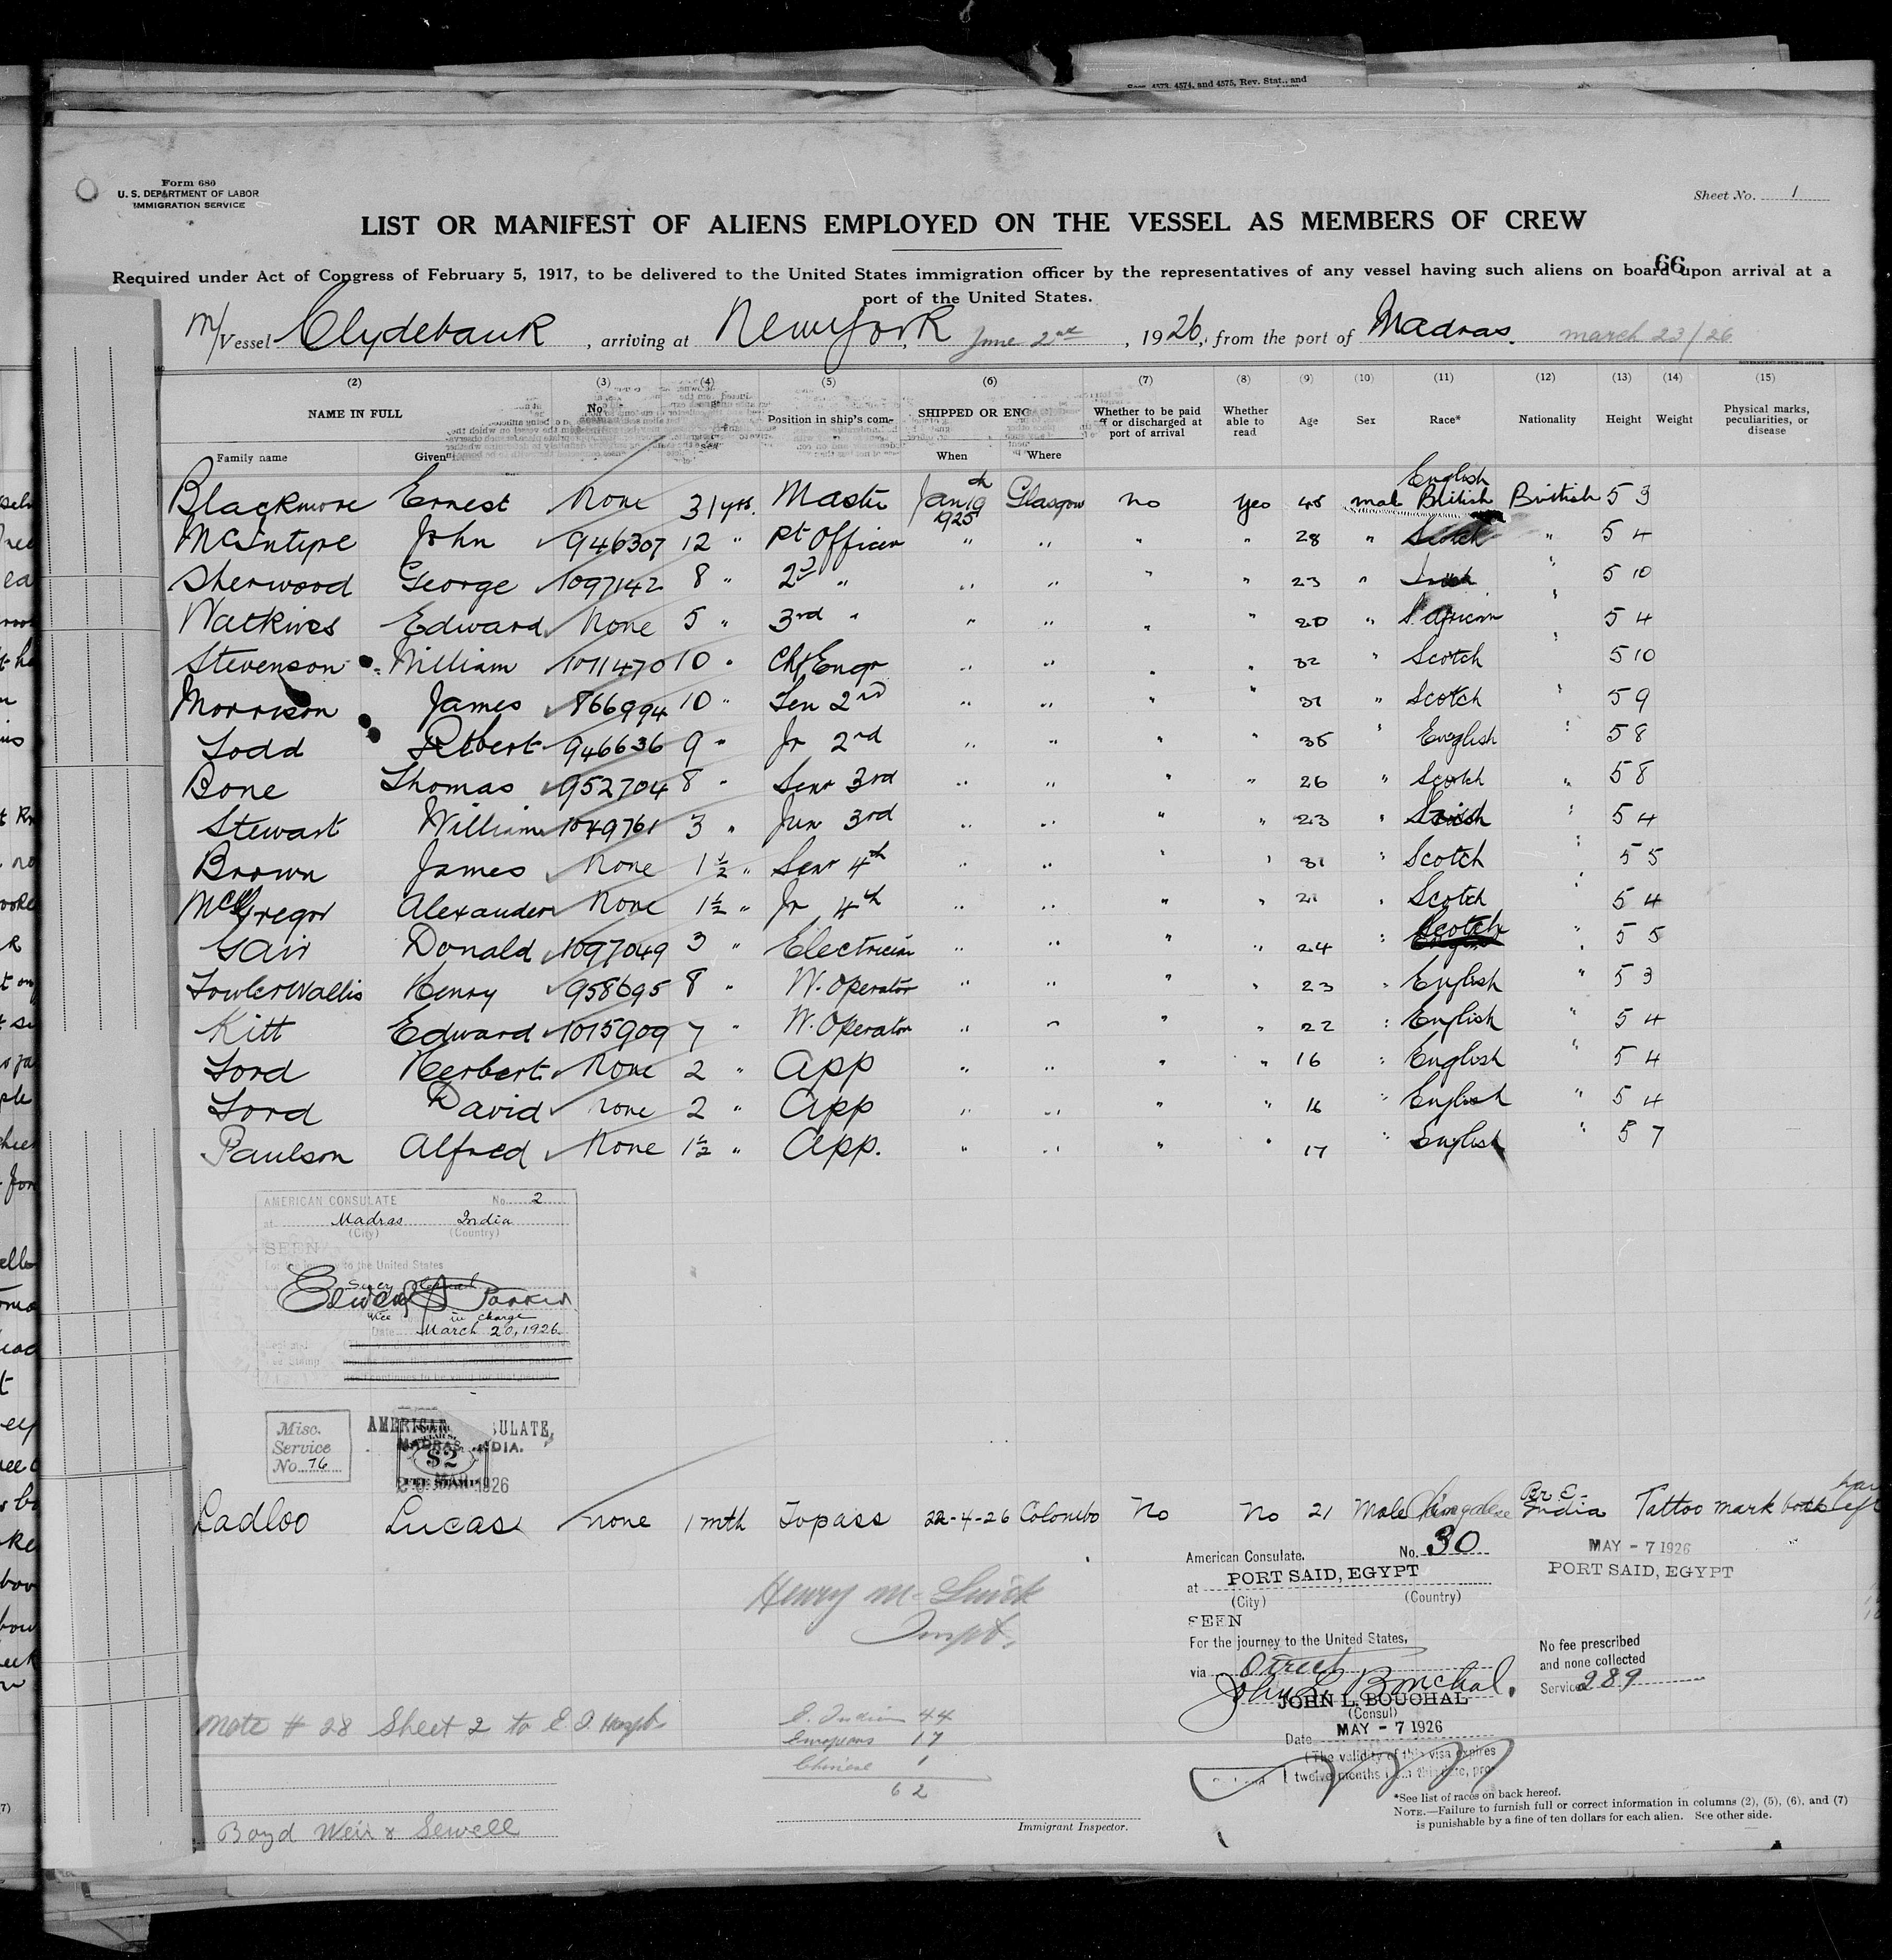 Secs. 4573, 4574, and 4575, Rev. Stat., and
Form 680
U. S. DEPARTMENT OF LABOR
IMMIGRATION SERVICE
Sheet No. 1
LIST OR MANIFEST OF ALIENS EMPLOYED ON THE VESSEL AS MEMBERS OF CREW
66
Required under Act of Congress of February 5, 1917, to be delivered to the United States immigration officer by the representatives of any vessel having such aliens on board upon arrival at a
port of the United States.
M/Vessel Clydebank, arriving at New York, June 2nd, 1926, from the port of Madras. March 23/26
(2) (3) (4) (5) (6) (7) (8) (9) (10) (11) (12) (13) (14) (15)
NAME IN FULL No Position in ship's com- SHIPPED OR ENG Whether to be paid off or discharged at port of arrival Whether able to read Age Sex Race* Nationality Height Weight Physical marks, peculiarities, or disease
Family name Given When Where
Blackmore Ernest None 31 yrs. Master Jan 19th 1925 Glasgow No Yes 48 male English British British 5 3
McIntyre John 946307 12 " 1st Officer " " " " 28 " Scotch " 5 4
Sherwood George 1097142 8 " 2nd " " " " " 23 " " 5 10
Watkins Edward None 5 " 3rd " " " " " 20 " S. African " 5 4
Stevenson William 1011470 10 " Chf Engr " " " " 32 " Scotch 5 10
Morrison James 866994 10 " Sen 2nd " " " " 31 " Scotch " 5 9
Todd Robert 946636 9 " Jr 2nd " " " " 35 " English " 5 8
Bone Thomas 952704 8 " Senr 3rd " " " " 26 " Scotch " 5 8
Stewart William 1049761 3 " Jun 3rd " " " " 23 " Scotch " 5 4
Brown James None 1½ " Senr 4th " " " " 31 " Scotch " 5 5
McGregor Alexander None 1½ " Jr 4th " " " " 21 " Scotch " 5 4
Gair Donald 1097049 3 " Electrician " " " " 24 " Scotch " 5 5
Fowler Wallis Henry 958695 8 " W. Operator " " " " 23 " English " 5 3
Kitt Edward 1015909 7 " W. Operator " " " " 22 " English " 5 4
Lord Herbert None 2 " App " " " " 16 " English " 5 4
Lord David None 2 " App " " " " 16 " English " 5 4
Paulson Alfred None 1½ " App. " " " " 17 " English " 5 7
AMERICAN CONSULATE No. 2
at Madras India
(City) (Country)
SEEN
For the journey to the United States
Edward Parker
Vice in charge
Date March 20, 1926.
Misc.
Service
No. 76
AMERICAN CONSULATE,
MADRAS, INDIA.
$2
FEE STAMP
MAR 1926
Ladloo Lucas none 1 mth Topass 22-4-26 Colombo No No 21 Male Br E. India Tattoo mark both
American Consulate. No. 30
at PORT SAID, EGYPT
(City) (Country)
MAY - 7 1926
PORT SAID, EGYPT
SEEN
For the journey to the United States,
via Direct
John L. Bouchal.
JOHN L. BOUCHAL
(Consul)
Date MAY - 7 1926
(The validity of this visa expires
twelve months from this date, pro-
No fee prescribed
and none collected
Service 289
Henry
Inspt.
Note # 28 Sheet 2 to E. I. Hospt.
E. Indian 44
Europeans 17
Chinese 1
62
Boyd Weir & Sewell
Immigrant Inspector.
*See list of races on back hereof.
NOTE.—Failure to furnish full or correct information in columns (2), (5), (6), and (7)
is punishable by a fine of ten dollars for each alien. See other side.